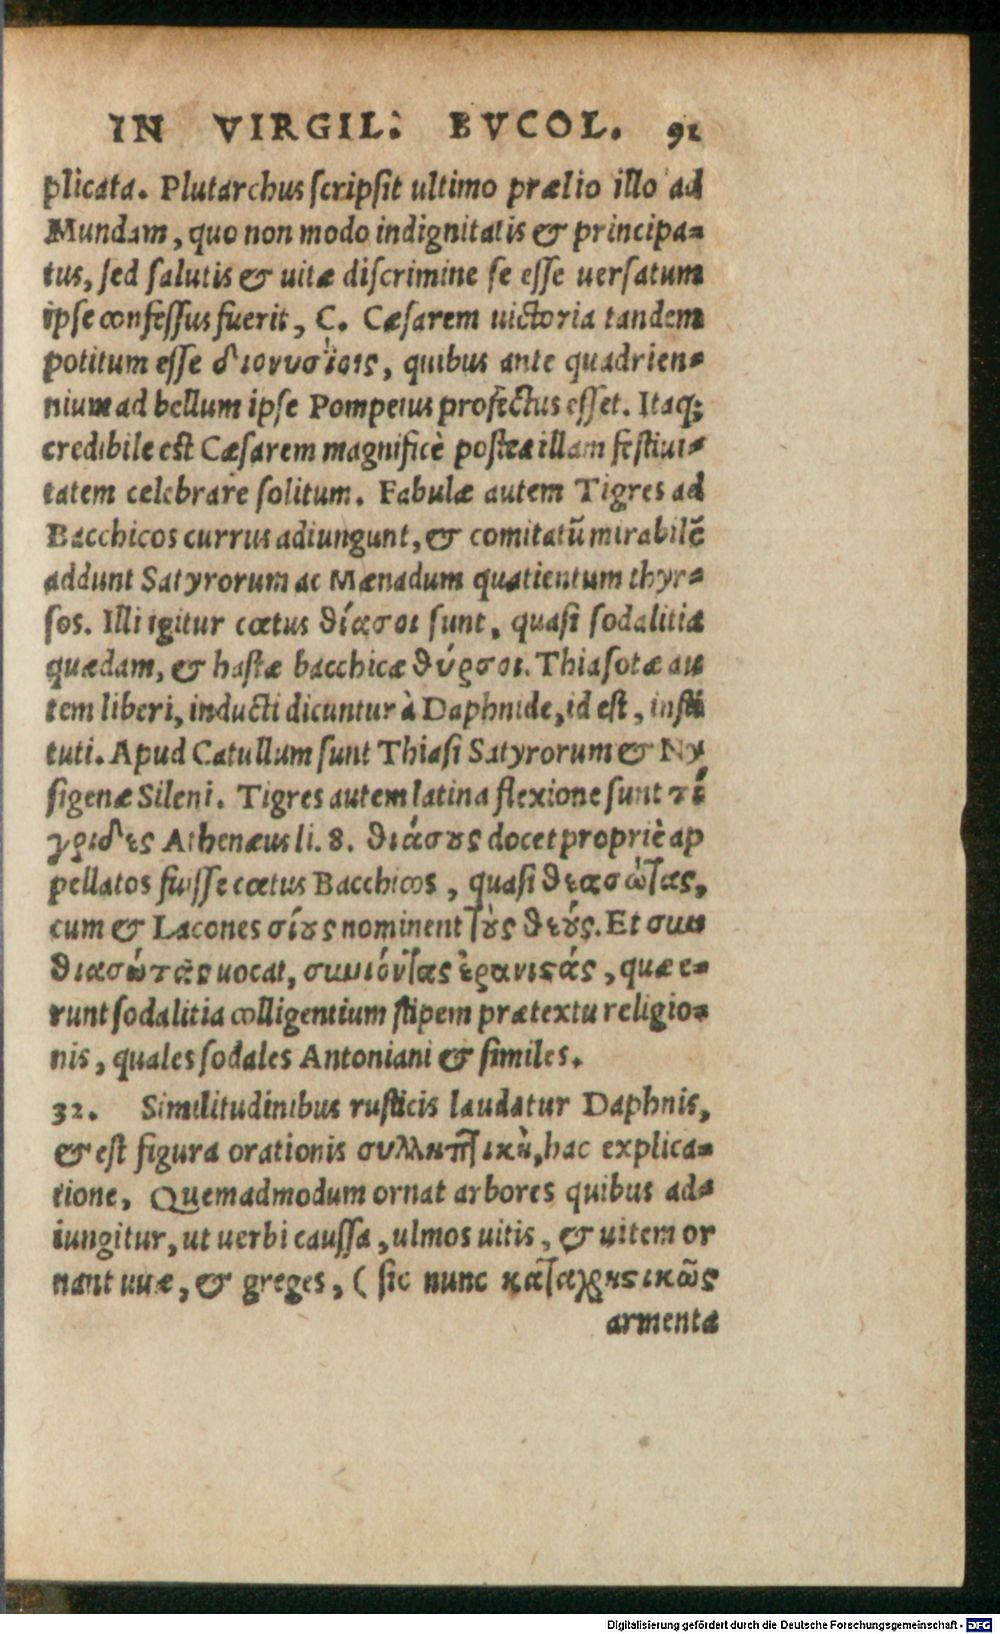 IN VIRGIL: BVCOL. 91
plicata. Plutarchus scripsit ultimo prælio illo ad
Mundam, quo non modo indignitatis & principa-
tus, sed salutis & uitæ discrimine se esse uersatum
ipse confessus fuerit, C. Cæsarem uictoria tandem
potitum esse διονυσίοις, quibus ante quadrien-
nium ad bellum ipse Pompeius profectus esset. Itaq;
credibile est Cæsarem magnificè postea illam festiui-
tatem celebrare solitum. Fabulæ autem Tigres ad
Bacchicos currus adiungunt, & comitatũ mirabilẽ
addunt Satyrorum ac Mænadum quatientum thyr-
sos. Illi igitur cœtus θίασοι sunt, quasi sodalitia
quædam, & hastæ bacchicæ θύρσοι. Thiasotæ au
tem liberi, inducti dicuntur à Daphnide, id est, insti
tuti. Apud Catullum sunt Thiasi Satyrorum & Ny
sigenæ Sileni. Tigres autem latina flexione sunt τί
γριδες Athenæus li. 8. θιάσους docet propriè ap
pellatos fuisse cœtus Bacchicos, quasi θεασώτας,
cum & Lacones σίους nominent τοὺς θεούς. Et συν
θιασώτας uocat, συνιόντας ἐρανιστάς, quæ e-
runt sodalitia colligentium stipem prætextu religio-
nis, quales sodales Antoniani & similes.
32. Similitudinibus rusticis laudatur Daphnis,
& est figura orationis συλληπτικὴ, hac explica-
tione, Quemadmodum ornat arbores quibus ad-
iungitur, ut uerbi caussa, ulmos uitis, & uitem or
nant uuæ, & greges, ( sic nunc καταχρηστικῶς
armenta
Digitalisierung gefördert durch die Deutsche Forschungsgemeinschaft - DFG